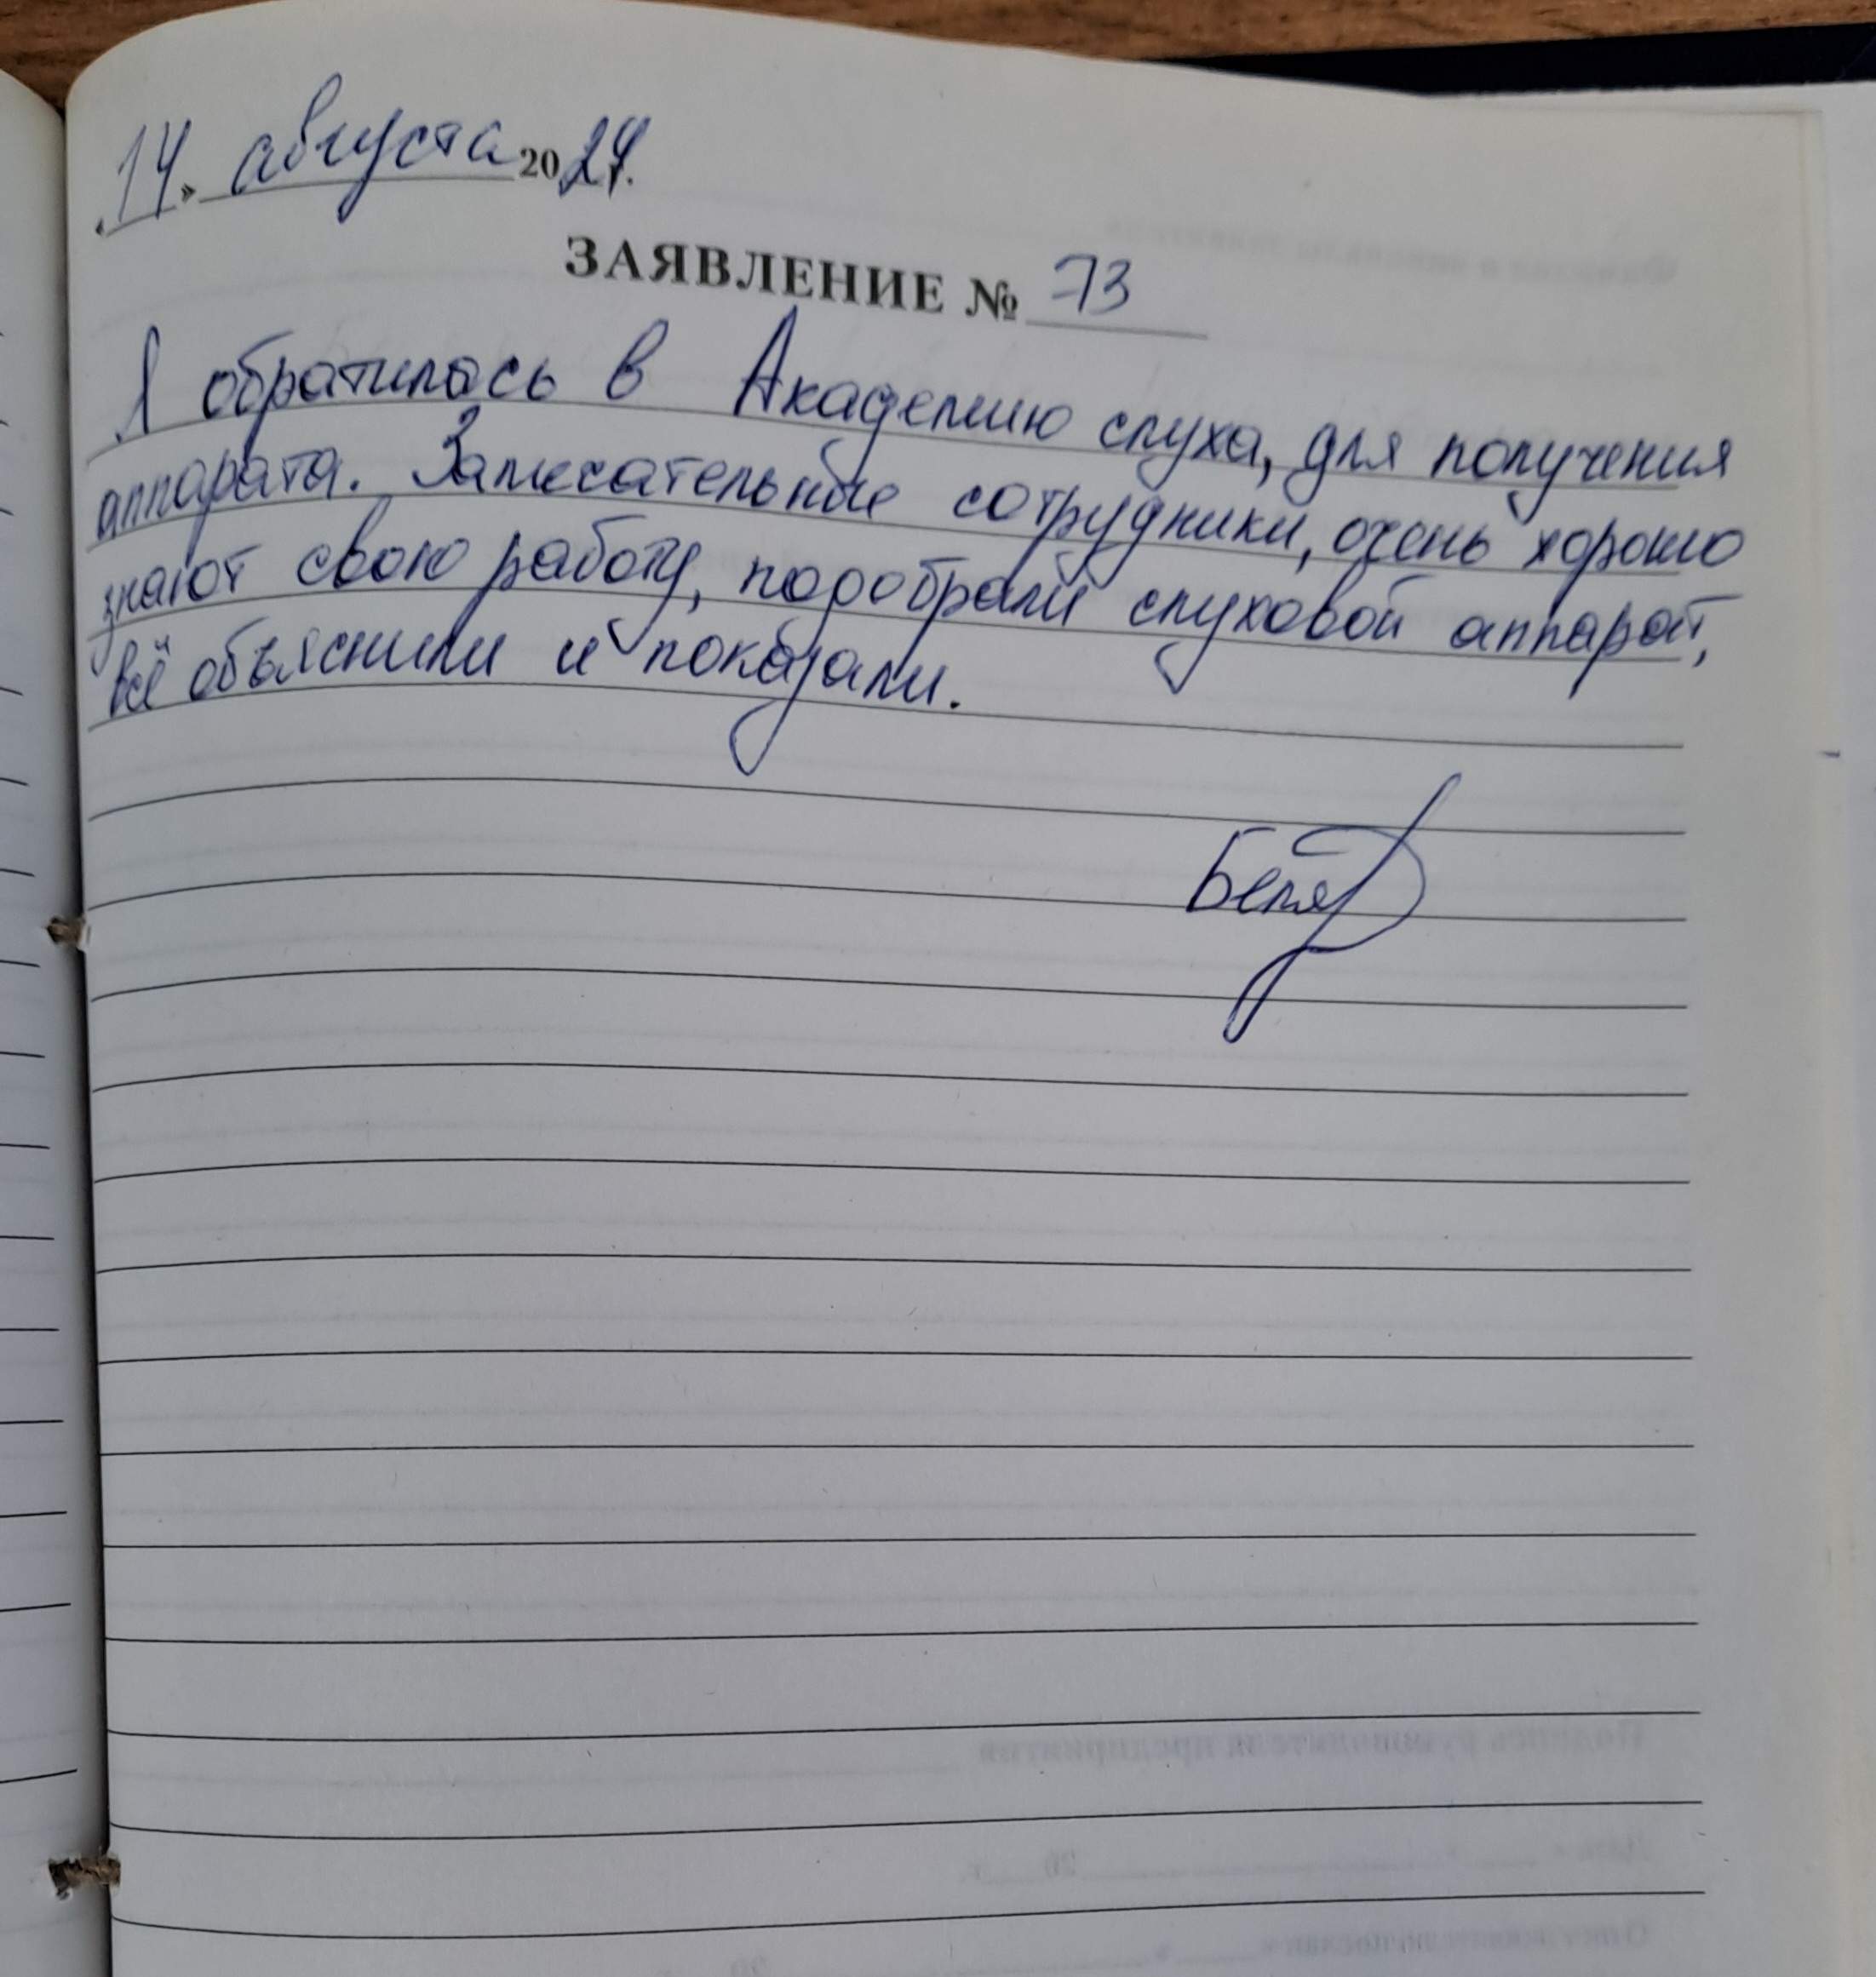 «14» августа 2024.
ЗАЯВЛЕНИЕ № 73
Я обратилась в Академию слуха, для получения
аппарата. Замечательные сотрудники, очень хорошо
знают свою работу, подобрали слуховой аппарат,
всё объяснили и показали.